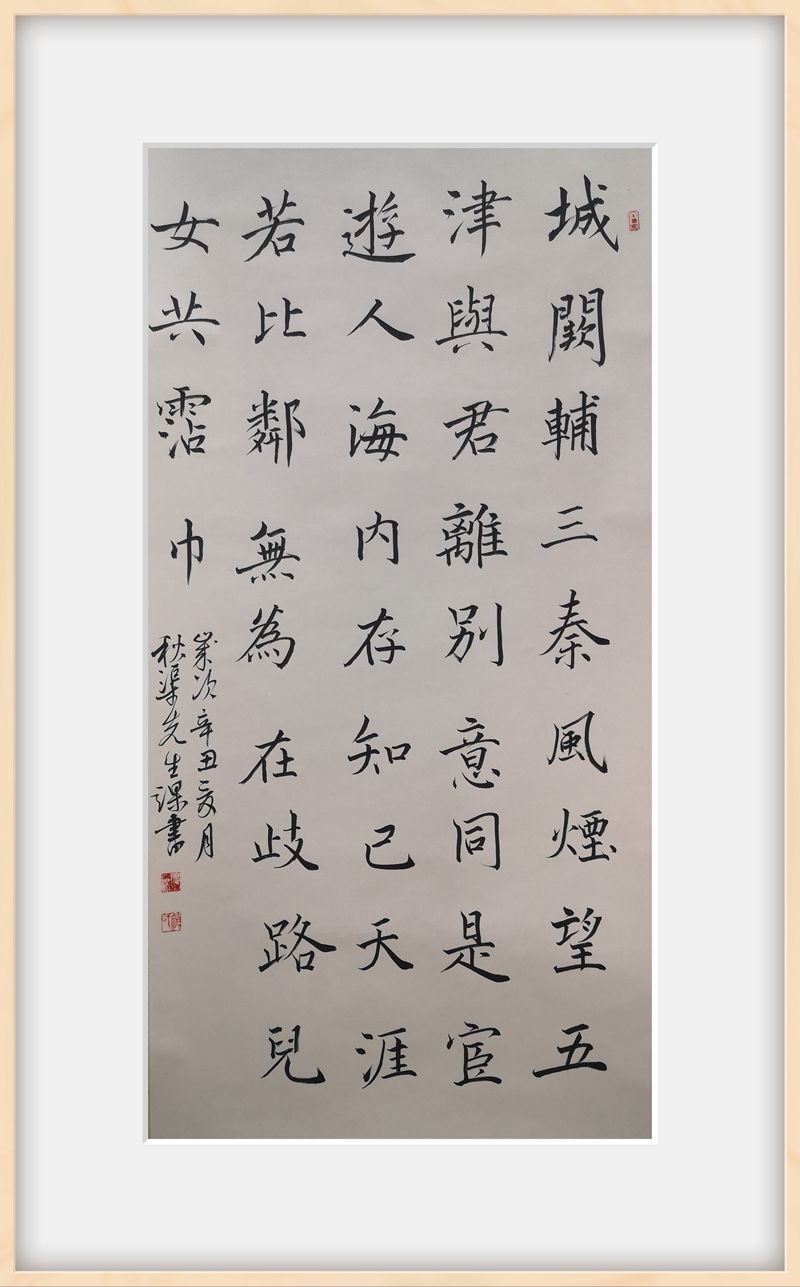 城闕輔三秦風煙望五
津與君離別意同是宦
遊人海内存知己天涯
若比鄰無為在歧路兒
女共霑巾
歲次辛丑亥月
秋渠先生課書